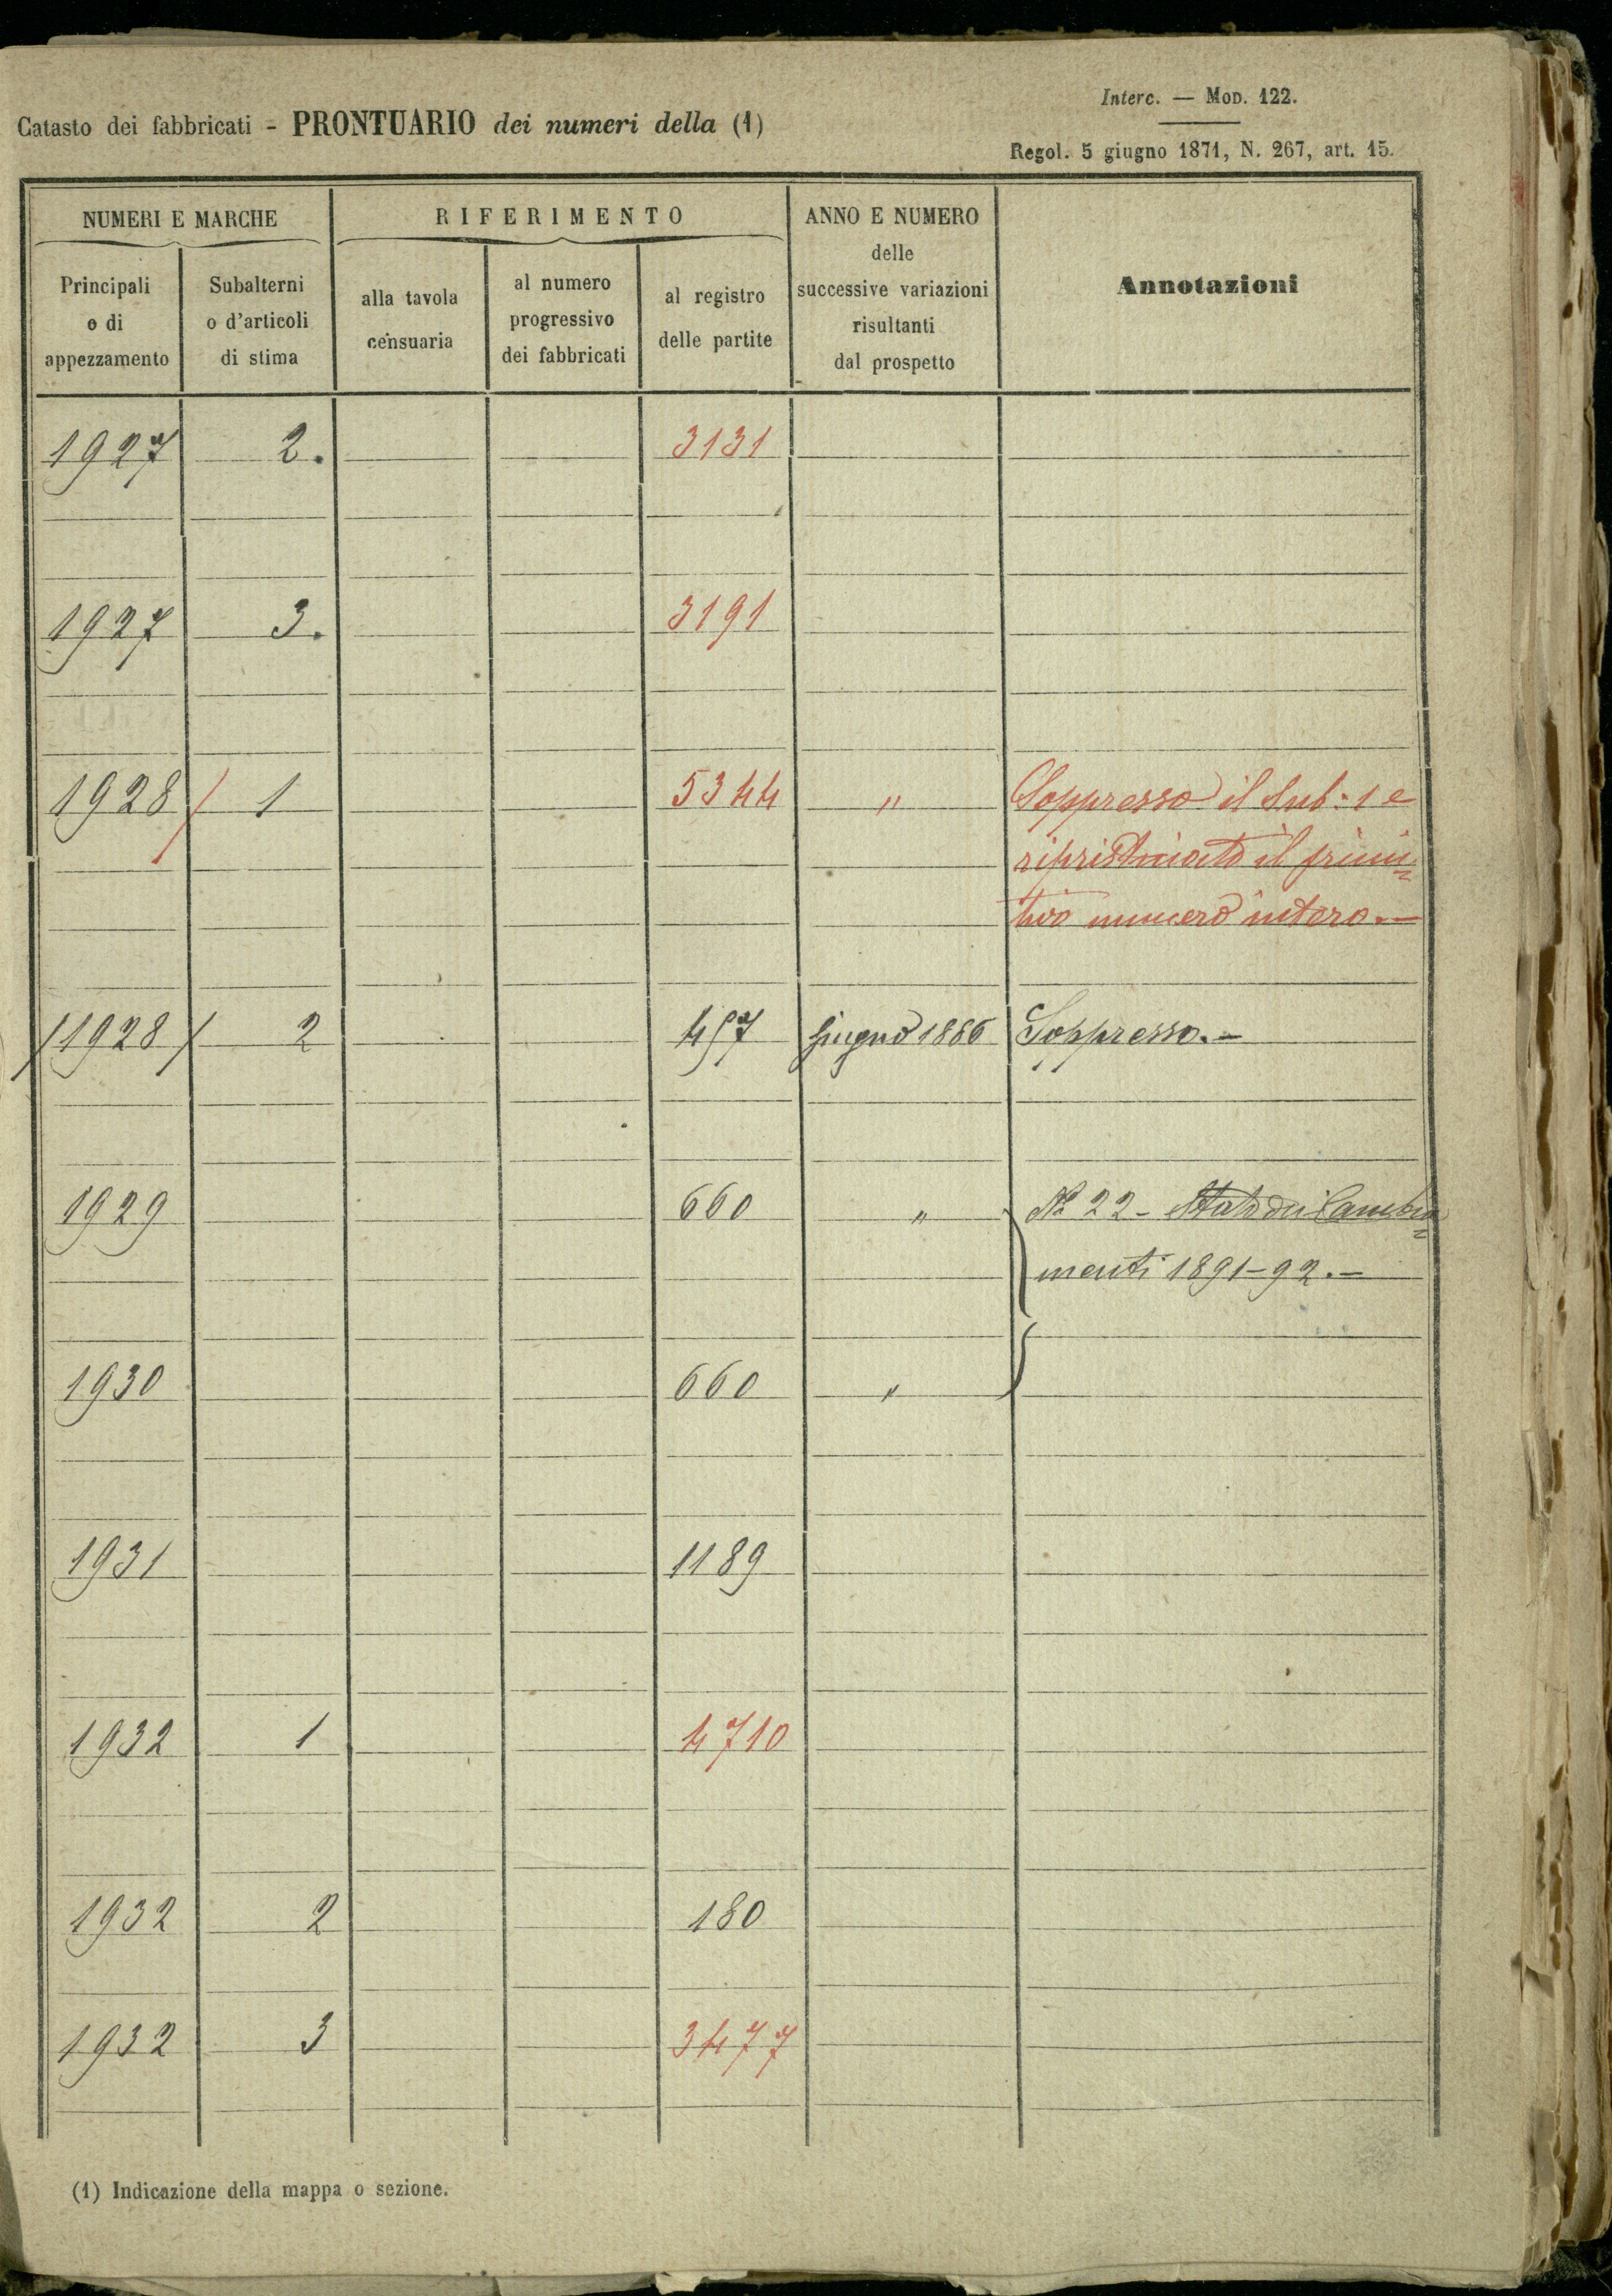 Interc. — Mod. 122.
Catasto dei fabbricati - PRONTUARIO dei numeri della (1)
Regol. 5 giugno 1871, N. 267, art. 15.
NUMERI E MARCHE
RIFERIMENTO
ANNO E NUMERO
delle
successive variazioni
risultanti
dal prospetto
Annotazioni
Principali
o di
appezzamento
Subalterni
o d'articoli
di stima
alla tavola
censuaria
al numero
progressivo
dei fabbricati
al registro
delle partite
1927 2. 3131
1927 3. 3191
1928 / 1 5344 " Soppresso il Sub: 1 e
ripristinato il primi=
tivo numero intero.—
/1928/ 2 457 Giugno 1886 Soppresso.—
1929 660 " No 22 - Stato dei Cambia=
menti 1891-92.—
1930 660 "
1931 1189
1932 1 4710
1932 2 180
1932 3 3477
(1) Indicazione della mappa o sezione.